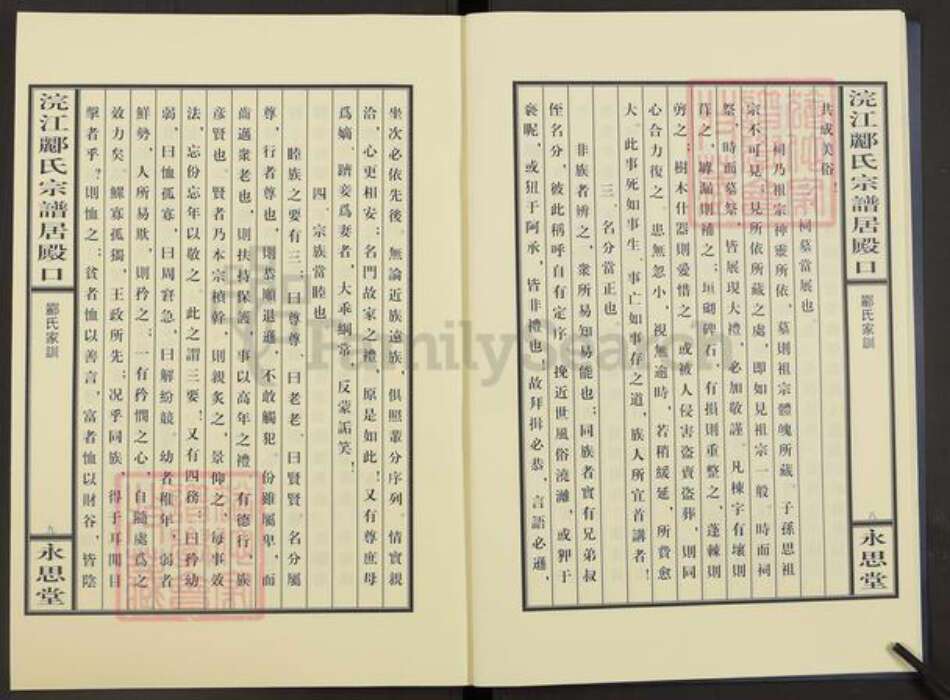 浣江酈氏宗譜居殿口
酈氏家訓
永思堂
共成美俗！
祠墓當展也
祠乃祖宗神靈所依，墓則祖宗體魄所藏。子孫思祖
宗不可見；見所依所藏之處，即如見祖宗一般。時而祠
祭，時而墓祭，皆展現大禮，必加敬謹。凡棟宇有壞則
葺之，罅漏則補之；垣砌碑石，有損則重整之，蓬棘則
剪之；樹木什器則愛惜之，或被人侵害盜賣盜葬，則同
心合力復之。患無忽小，視無逾時，若稍緩延，所費愈
大。此事死如事生、事亡如事存之道，族人所宜首講者！
三、名分當正也
非族者辨之，衆所易知易能也；同族者實有兄弟叔
侄名分，彼此稱呼自有定序。挽近世風俗澆漓，或狎于
褻昵，或狃于阿承，皆非禮也。故拜揖必恭，言語必遜，
坐次必依先後。無論近族遠族，俱照輩分序列。情實親
洽，心更相安；名門故家之禮，原是如此！又有尊庶母
爲嫡，躋妾爲妻者，大乖綱常，反蒙詬笑！
四、宗族當睦也
睦族之要有三：曰尊尊、曰老老、曰賢賢。名分屬
尊，行者尊也，則恭順退遜，不敢觸犯。份雖屬卑，而
齒邁衆老也，則扶持保護，事以高年之禮。有德行，族
彥賢也。賢者乃本宗楨幹，則親炙之，景仰之，每事效
法，忘份忘年以敬之。此之謂三要！又有四務：曰矜幼
弱，曰恤孤寡，曰周窘急，曰解紛競。幼者稚年，弱者
鮮勢，人所易欺，則矜之；一有矜憫之心，自隨處爲之
效力矣。鰥寡孤獨，王政所先；况乎同族，得于耳聞目
擊者乎？則恤之；貧者恤以善言，富者恤以財谷，皆陰
浣江酈氏宗譜居殿口
酈氏家訓
九
永思堂
FamilySearch